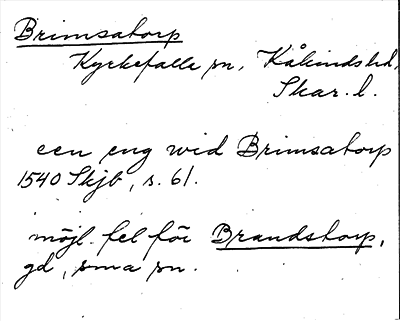 Brimsatorp
Kyrkefalla sn, Kåkinds hd,
Skar. l.
een eng wid Brimsatorp
1540 Skjb, s. 61.
möjl. fel för Brandstorp,
gd, sma sn.